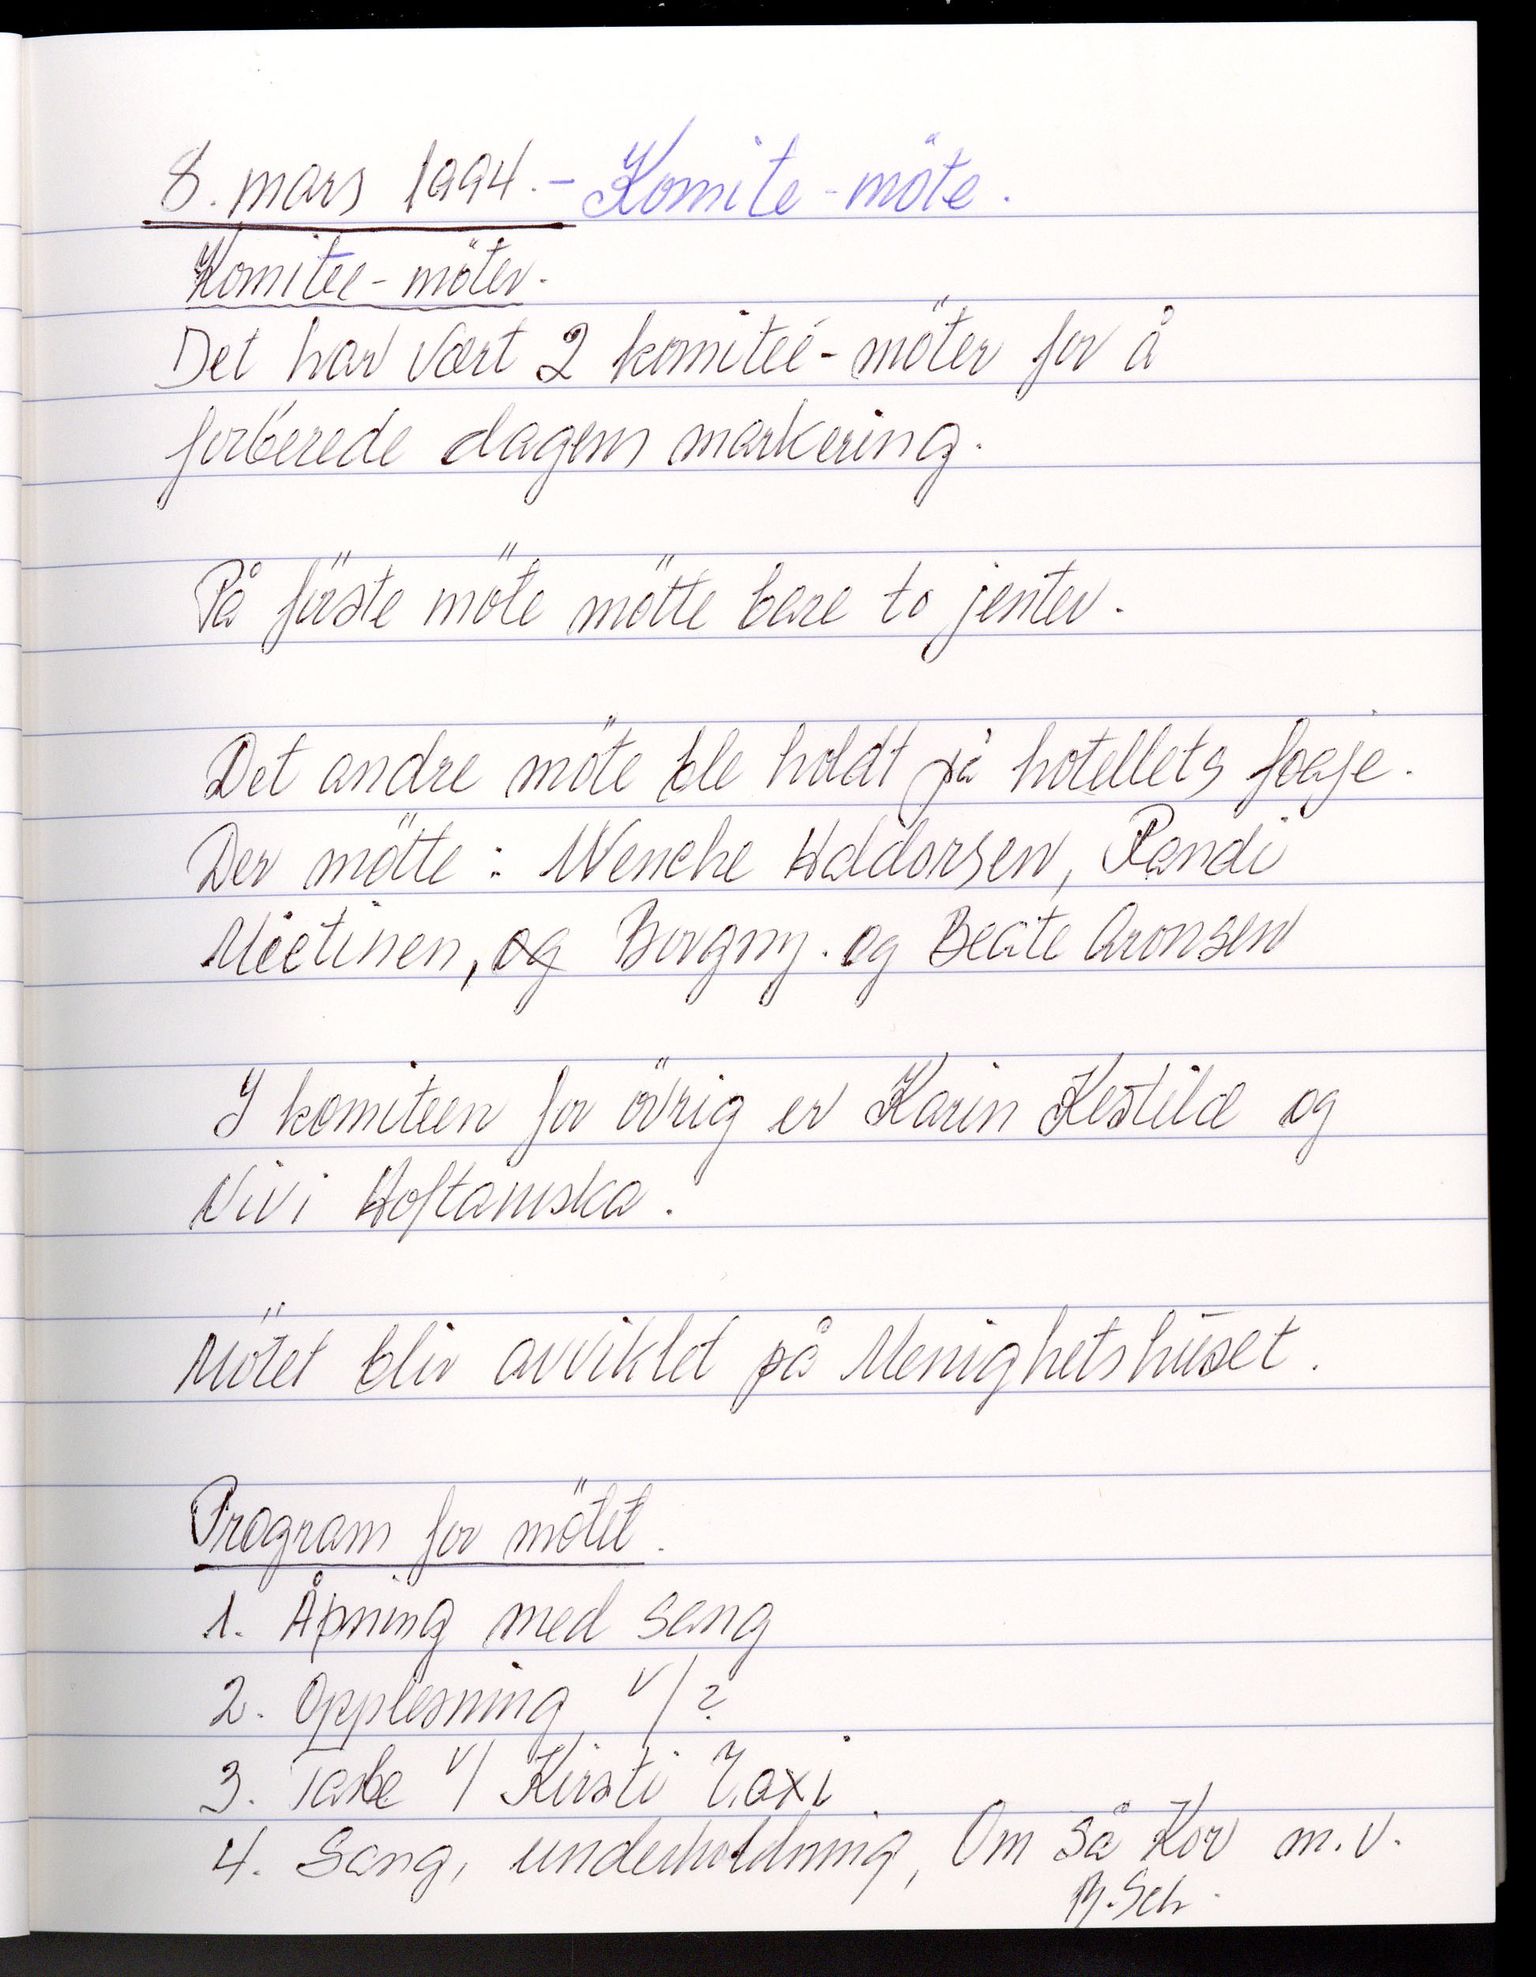 8. mars 1994. - Komite - möte.
Komitee - möter.
Det har vært 2 komiteé - möter for å
forberede dagens markering.
På förste möte mötte bare to jenter.
Det andre möte ble holdt på hotellets foaje.
Der mötte : Wenche Haldorsen, Randi
Mietinen, og Borgny. og Beate Aronsen
I komiteen for övrig er Karin Kestilä og
Vivi
Mötet blir avviklet på Menighetshuset.
Program for mötet.
1. Åpning med sang
2. Opplesning v/ ?
3. Tale v/ Kirsti
4. Sang, underholdning, Om så Kor m.v.
B. Sch.